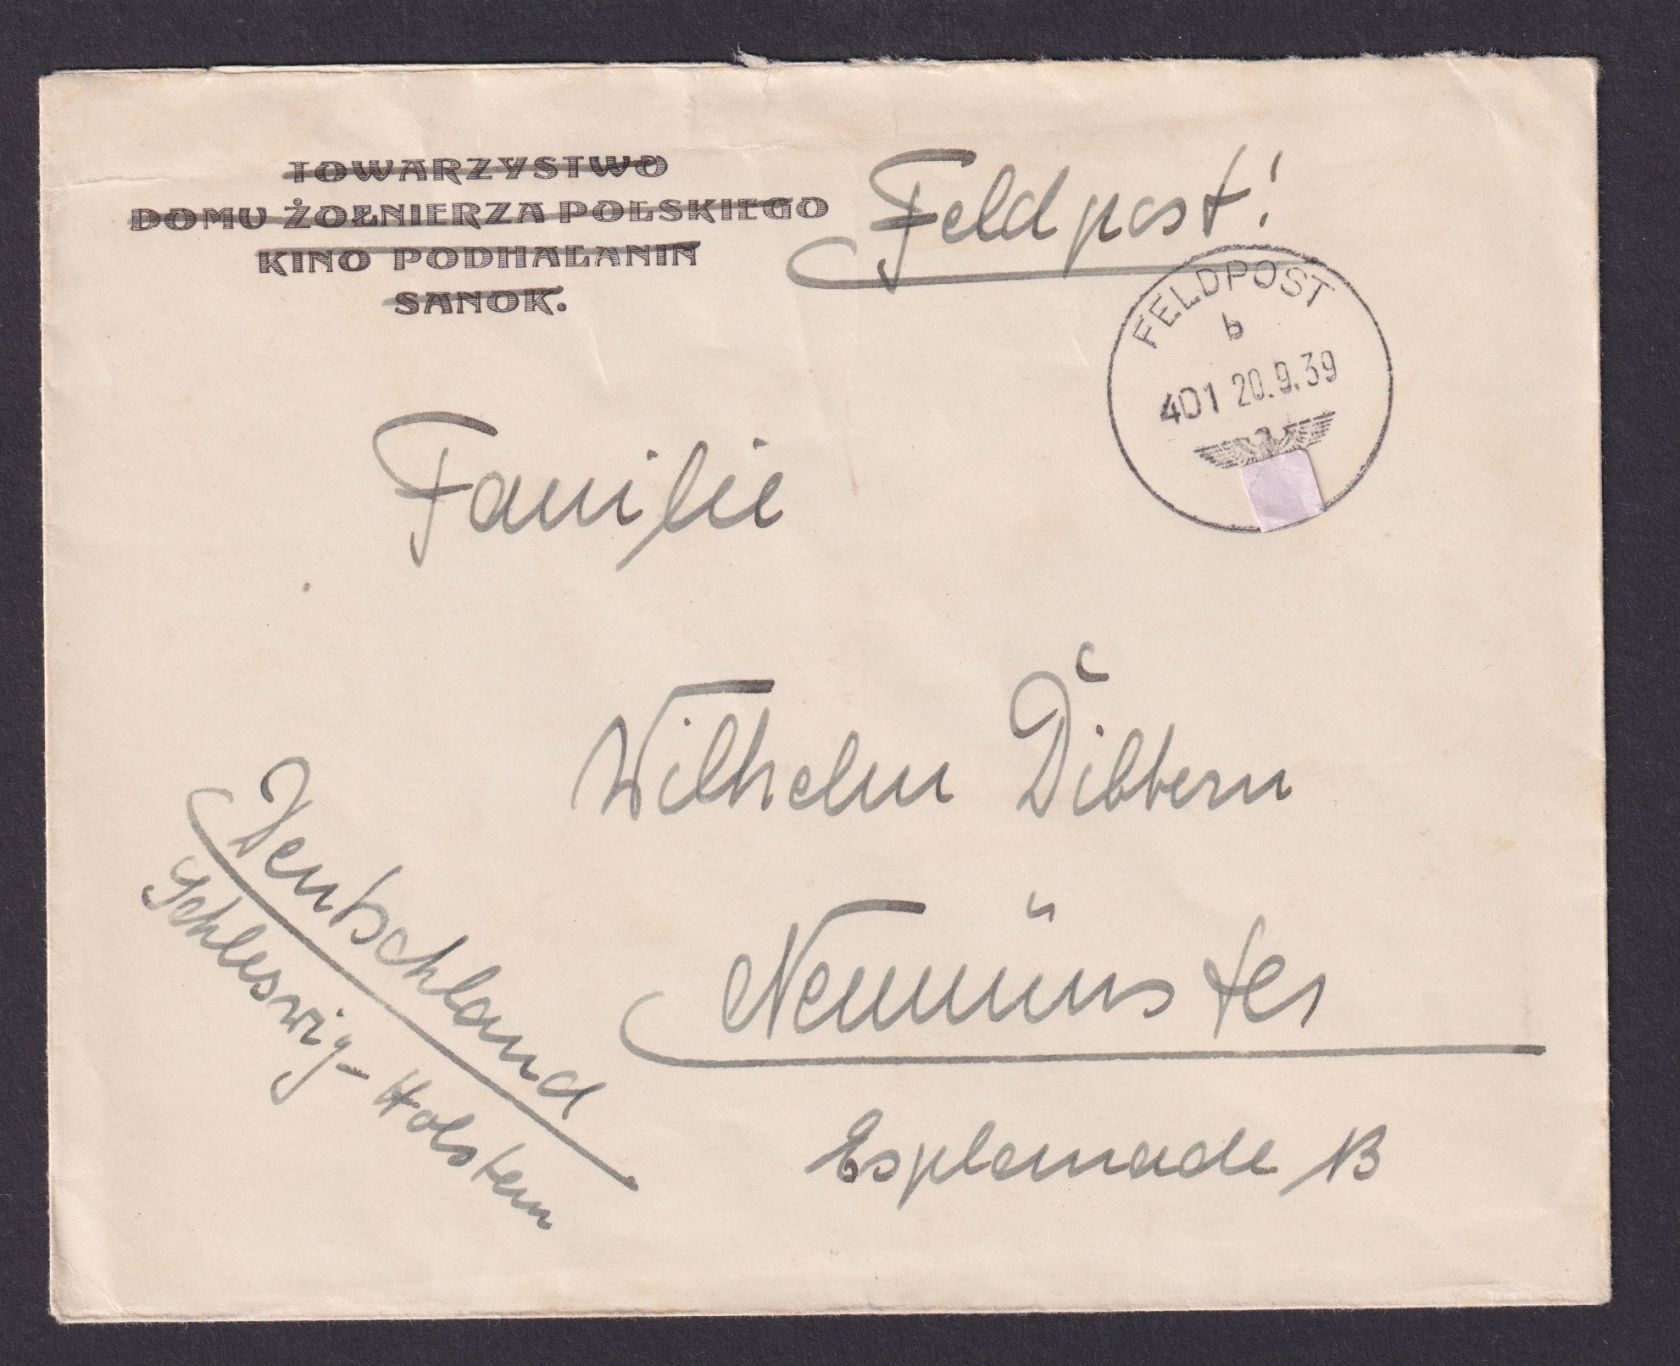 TOWARZYSTWO
DOMU ŻOŁNIERZA POLSKIEGO
KINO PODHALANIN
SANOK.
Feldpost!
FELDPOST
b
401 20.9.39
Familie
Wilhelm Dibbern
Neumünster
Esplanade 13
Deutschland
Schleswig-Holstein